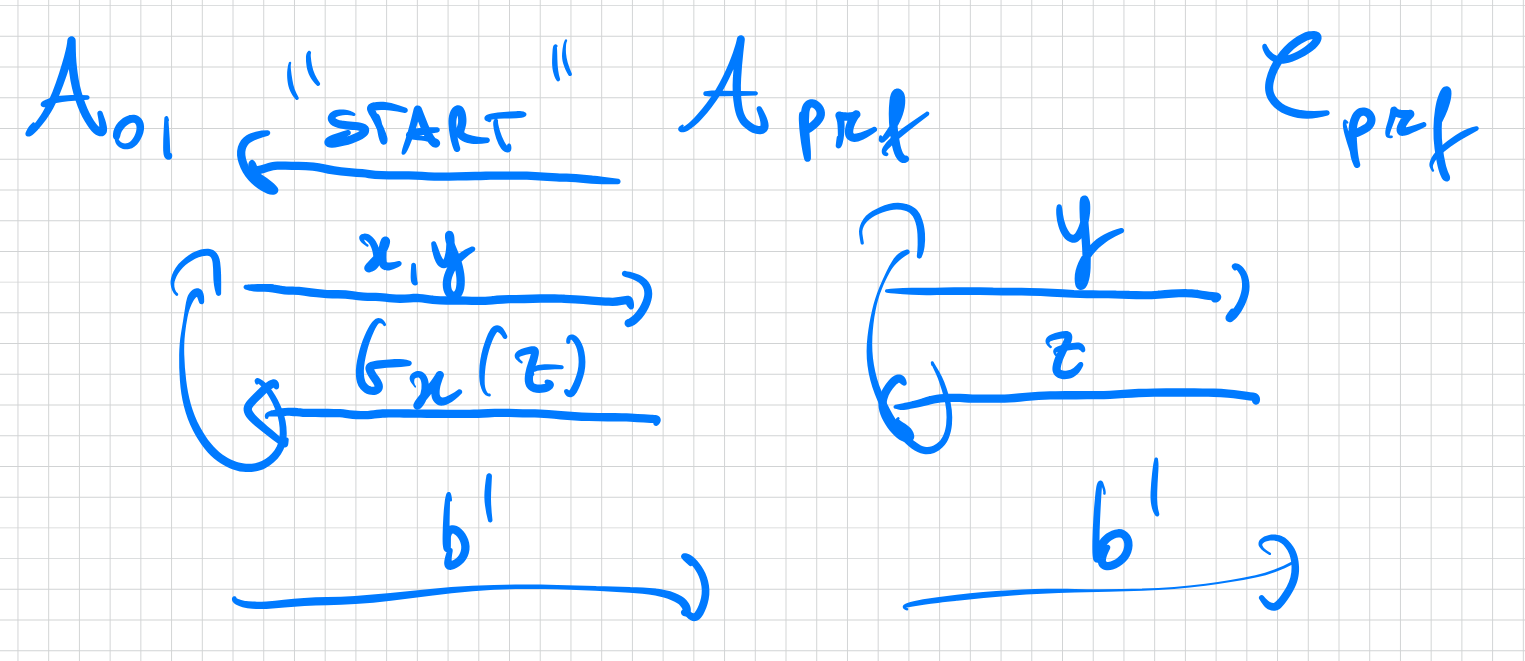 A₀₁ "START" A prf C prf
x, y y
σₓ(z) z
b' b'